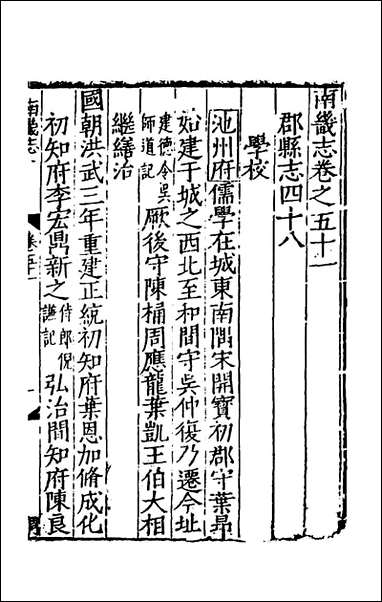 南畿志卷之五十一
郡縣志四十八
學校
池州府儒學在城東南隅宋開寶初郡守葉昴
始建于城之西北至和間守吳仲復乃遷今址
建德令吳師道記厥後守陳桶周應龍葉凱王伯大相
繼繕治
國朝洪武三年重建正統初知府葉恩加脩成化
初知府李宏鼎新之侍郎倪謙記弘治間知府陳良
南畿志
卷五十一
一